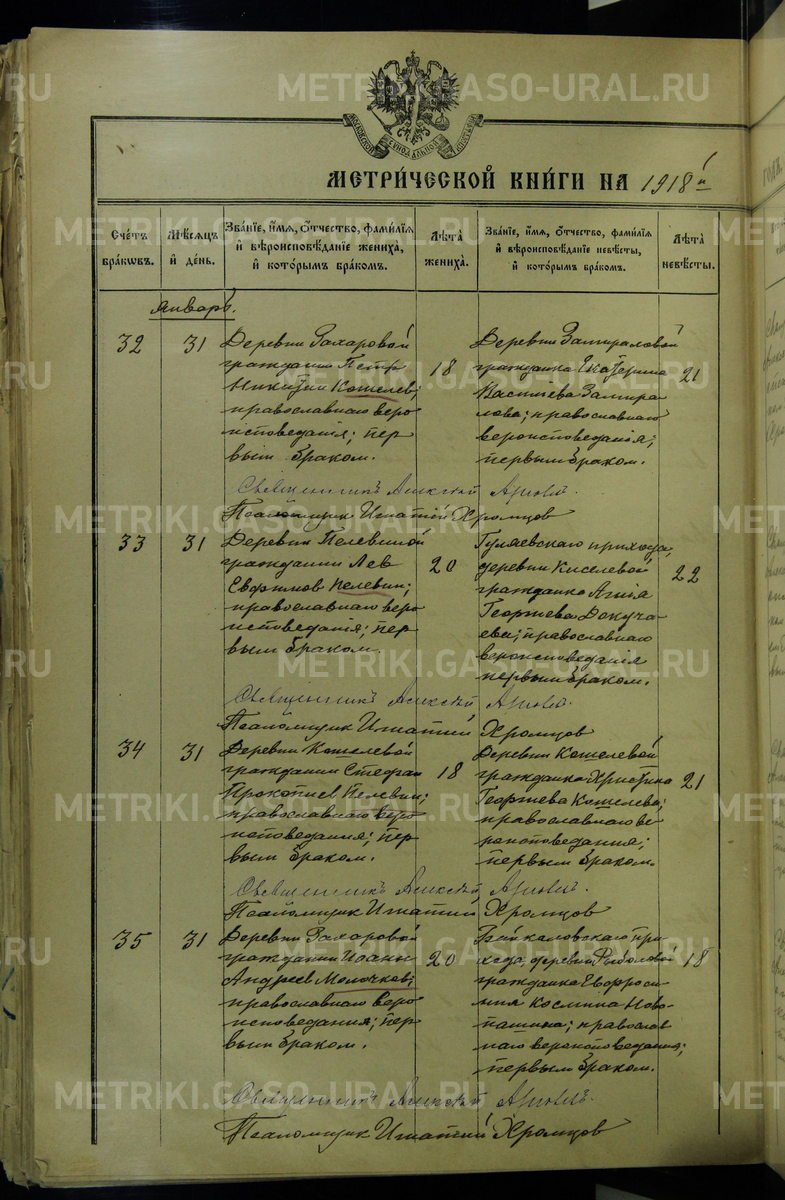 METRIKI.GASO-URAL.RU
МЕТРИ́ЧЕСКОЙ КНИ́ГИ НА 1918й
Сче́тъ бра́кѡвъ.
Мѣ́сѧцъ и҆ де́нь.
Зва́нїе, и҆́мѧ, ѻ҆́тчество, фами́лїѧ и҆ вѣроисповѣ́данїе жениха̀, и҆ кото́рымъ бра́комъ.
Лѣ́та жениха̀.
Зва́нїе, и҆́мѧ, ѻ҆́тчество, фами́лїѧ и҆ вѣроисповѣ́данїе невѣ́сты, и҆ кото́рымъ бра́комъ.
Лѣ́та невѣ́сты.
Январь.
32
31
Деревни Захаровой
гражданин Петр
Никитин Кошелев;
православнаго веро
исповедания; пер
вым браком.
18
Деревни Замираловой
гражданка Екатерина
Васильева Замира
лова; православнаго
вероисповедания;
первым браком.
21
Священникъ Алексей
Псаломщик Игнатий Хромцов
33
31
Деревни Пелевиной
гражданин Лев
Евфимов Пелевин;
православнаго веро
исповедания; пер
вым браком.
20
Гуляевскаго прихода,
деревни Киселевой
гражданка Агния
Георгиева Докуча
ева; православнаго
вероисповедания
первым браком.
22
Священникъ Алексей
Псаломщик Игнатий Хромцов
34
31
Деревни Кошелевой
гражданин Стефан
Прокопиев Пелевин;
православнаго веро
исповедания; пер
вым браком.
18
Деревни Кошелевой
гражданка Христина
Георгиева Кошелева;
православнаго ве
роисповедания;
первым браком.
21
Священникъ Алексей
Псаломщик Игнатий Хромцов
35
31
Деревни Захаровой
гражданин Иоанн
Андреев Молочков;
православнаго веро
исповедания; пер
вым браком.
20
Байкаловскаго при
хода, деревни Рыболовой
гражданка Евфроси
ния Космина Ново
пашина; православ
наго вероисповедания;
первым браком.
18
Священникъ Алексей
Псаломщик Игнатий Хромцов